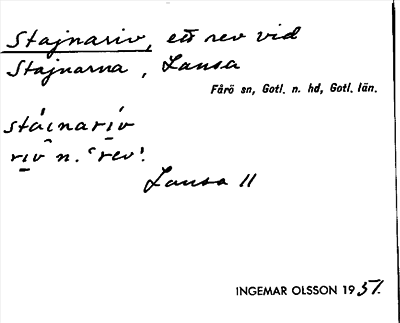 Stajnariv, ett rev vid
Stajnarna, Lansa
Fårö sn, Gotl. n. hd, Gotl. län.
stáinarív
riv n. 'rev'.
Lansa 11
INGEMAR OLSSON 1951.